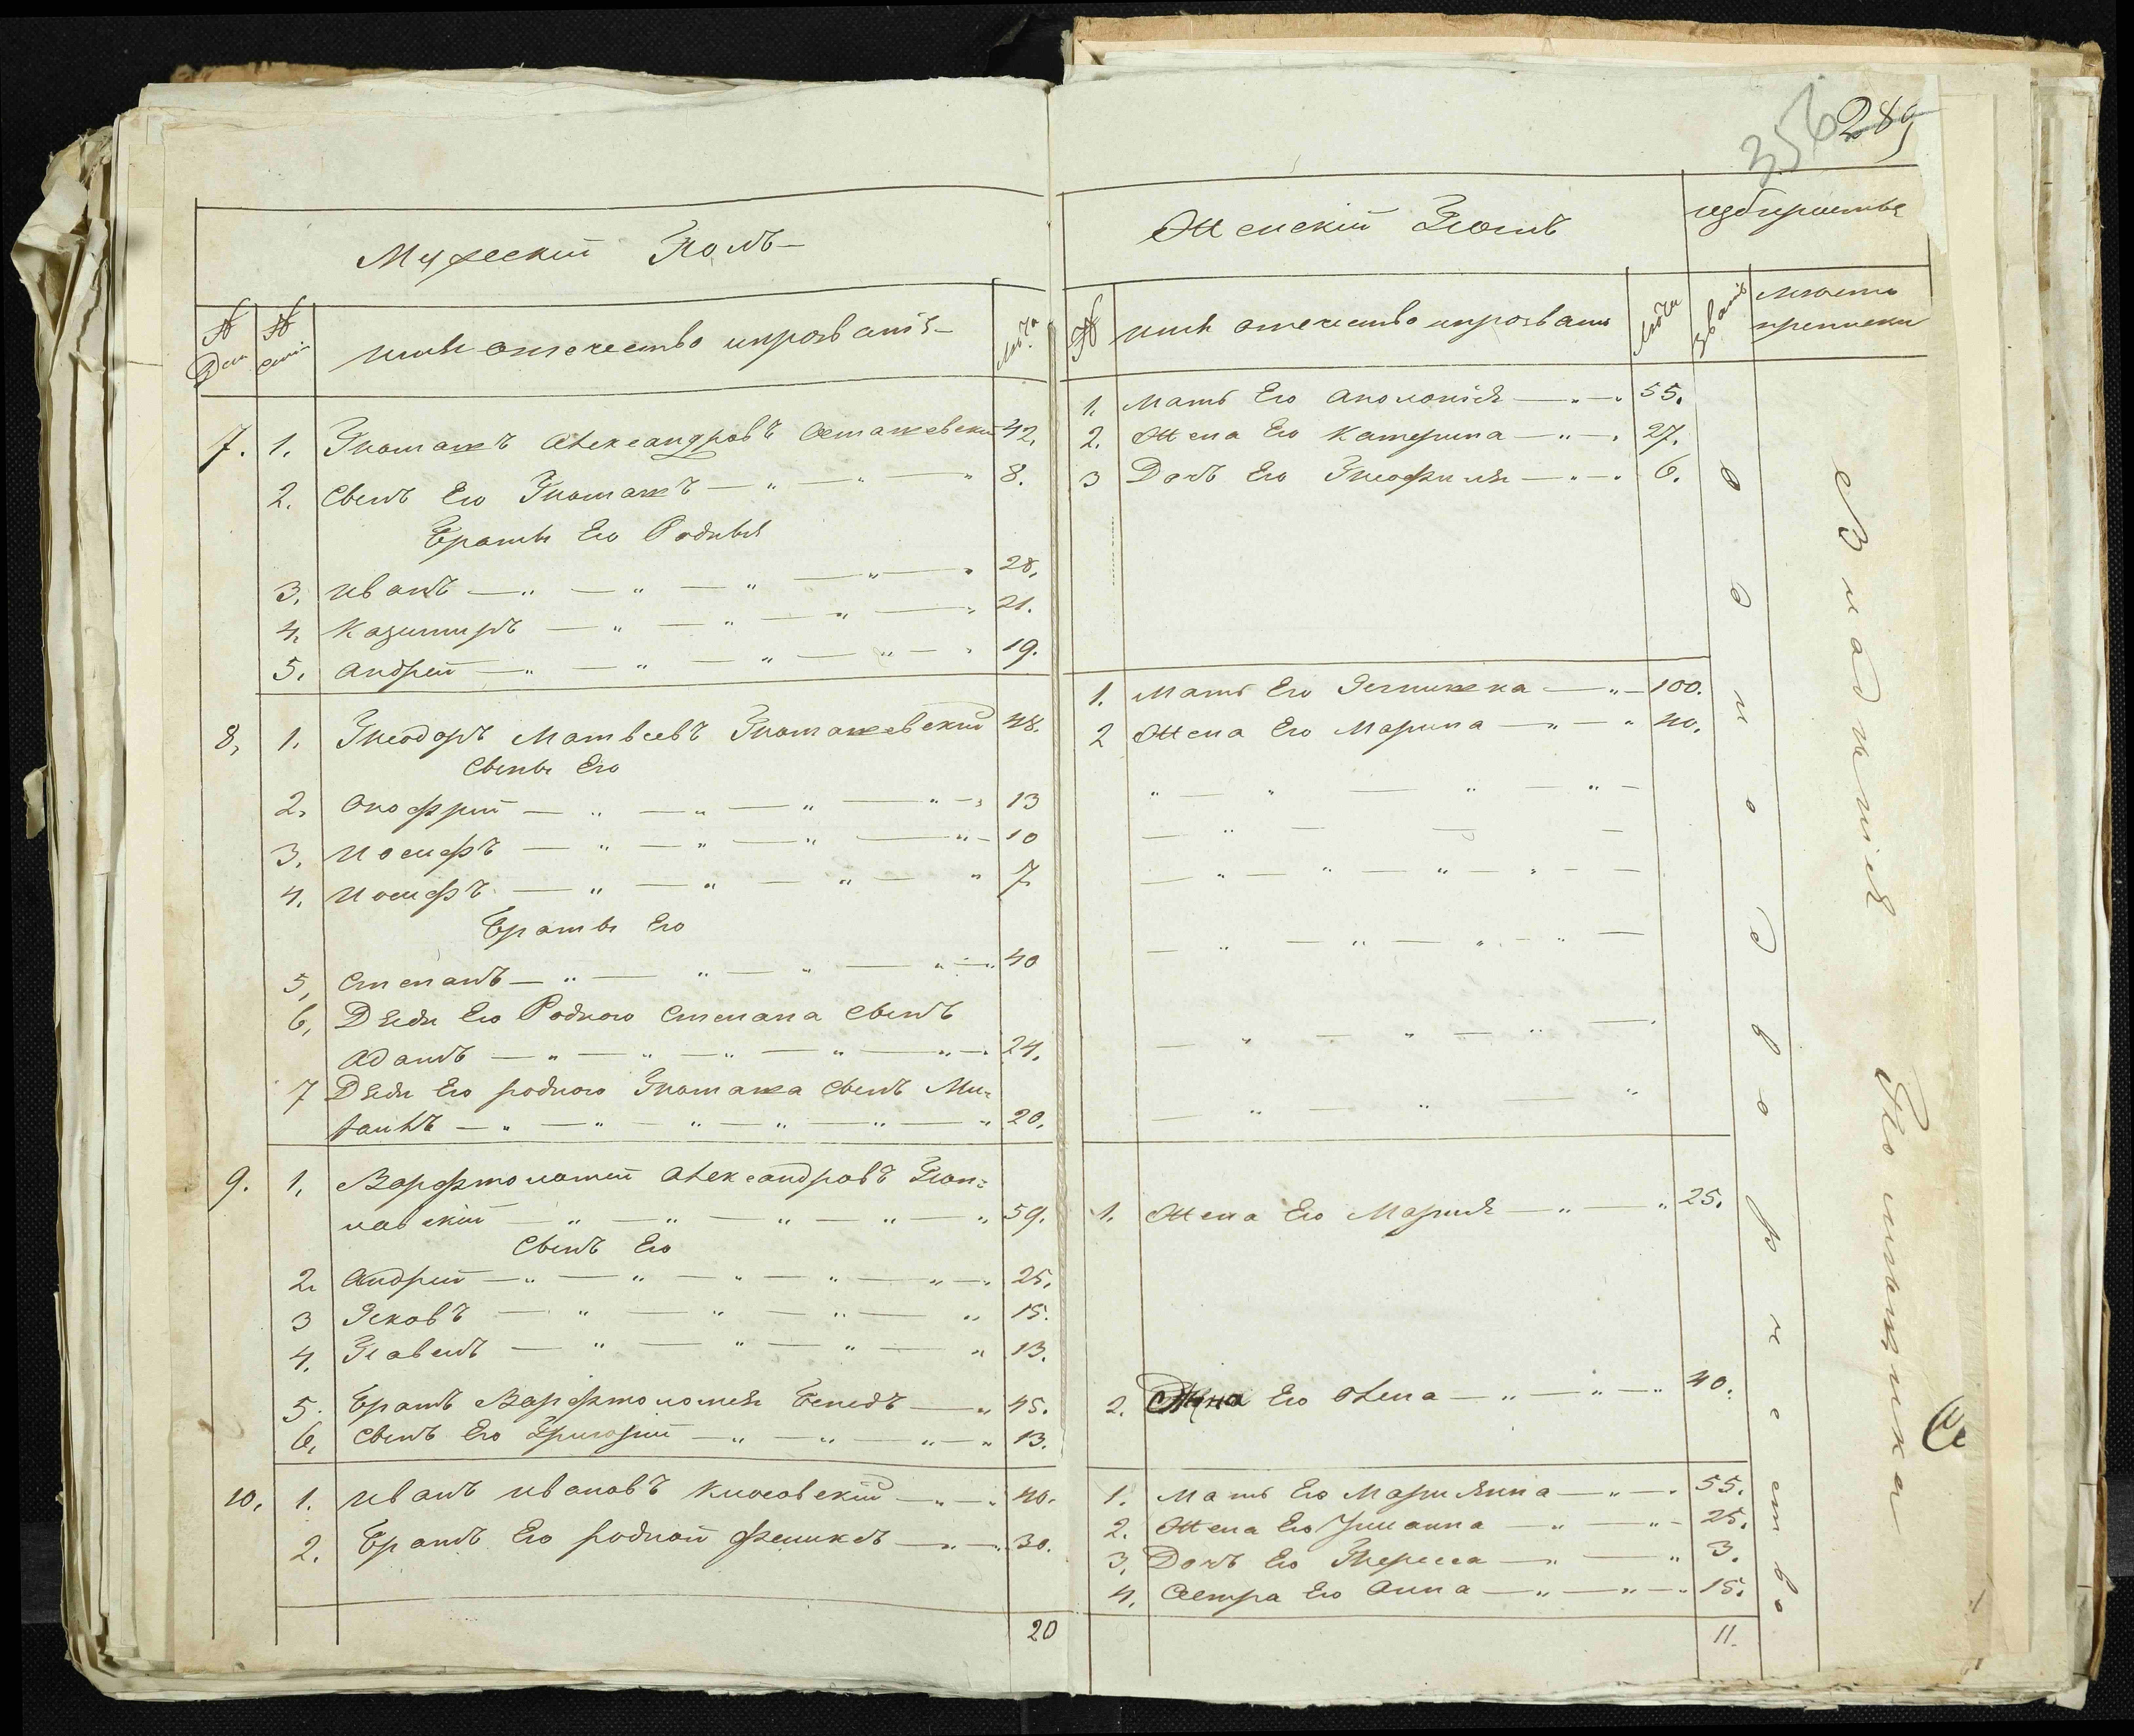 356 289
Мужескій Полъ
№ Дом
№ Семей
имя отечество ипрозваніе
Лѣта
7. 1. Томашъ Александровъ Осташевски 42.
2. Сынъ Его Томашъ 8.
Братья Его Родныя
3. Иванъ 28.
4. Казимиръ 21.
5. Андрей 19.
8, 1. Теодоръ Матвеевъ Томашевский 48.
Сыны Его
2. Онофрий 13
3. Иосифъ 10
4. Иосифъ 7
Братья Его
5, Степанъ 40
6, Дяди Его Родного Степана Сынъ
Адамъ 24.
7 Дяди Его родного Томаша Сынъ Ми-
хаилъ 20.
9. 1, Варфтоломей Александровъ
лавскій 59.
Сынъ Его
2. Андрей 25.
3 Яковъ 15.
4. Павелъ 13.
5. Братъ Варфтоломея Бенедъ 45.
6, Сынъ Его Григорий 13.
10, 1. Иванъ Ивановъ 40.
2. Братъ Его родной Феликсъ 30.
20
Женский Полъ
№
имя отечество ипрозвани
Лѣта
Звание
место
приписки
1. Мать Его Аполонія 55.
2. Жена Его Катерина 27.
3 Дочь Его Теофиля 6.
1. Мать Его Агнишка 100.
2 Жена Его Марина 40.
1. Жена Его Мария 25.
2. Жена Его Олена 40.
1. Мать Его Мариянна 55.
2. Жена Его Юлианна 25.
3, Дочь Его Тересса 3.
4, Сестра Его Анна 15.
11.
Однодворчество
Владения Помещика